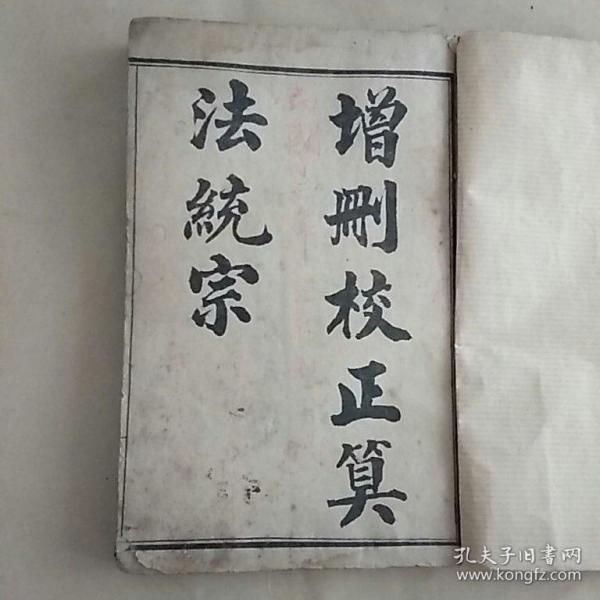 增刪校正算
法統宗
孔夫子旧書网
www.kongfz.com